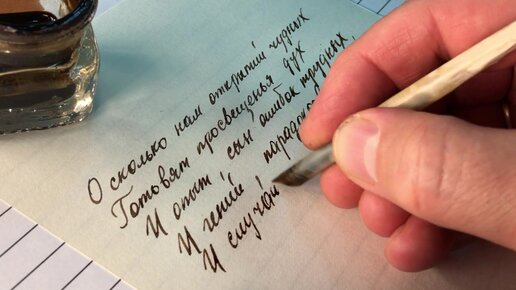 О сколько нам открытий чудных
Готовят просвещенья дух
И опыт, сын ошибок трудных,
И гений парадокс
И случай